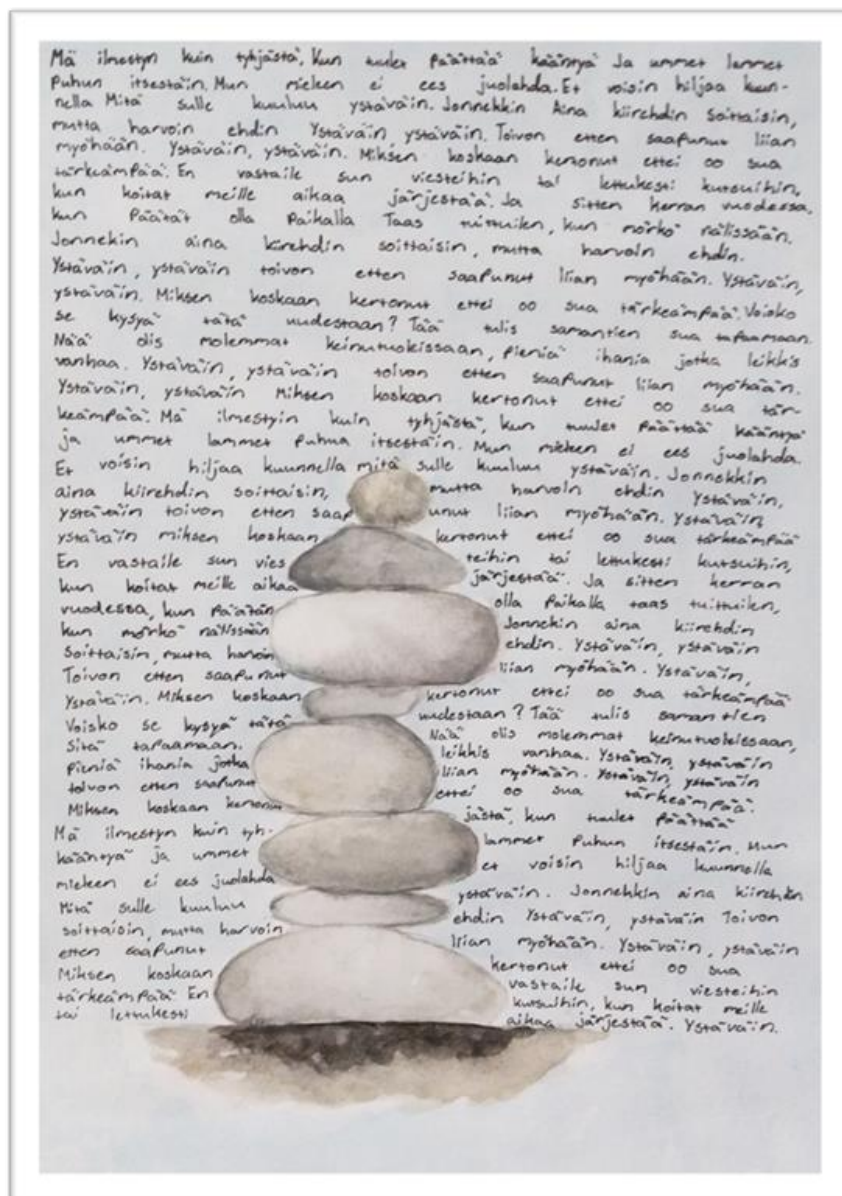 Mä ilmestyn kuin tyhjästä, kun tuulet Päättää kääntyä Ja ummet lammet
Puhun itsestäin. Mun mieleen ei ees juolahda. Et voisin hiljaa kuun-
nella Mitä sulle kuuluu ystäväin. Jonnekkin Aina kiirehdin Soittaisin,
mutta harvoin ehdin Ystäväin ystäväin. Toivon etten saapunut liian
myöhään. Ystäväin, ystäväin. Miksen koskaan kertonut ettei oo sua
tärkeämpää. En vastaile sun viesteihin tai lettukesti kutsuihin,
kun koitat meille aikaa järjestää. Ja sitten kerran vuodessa,
kun Päätät olla Paikalla Taas tuittuilen, kun mörkö nälissään.
Jonnekin aina kirehdin soittaisin, mutta harvoin ehdin.
Ystäväin, ystäväin toivon etten saapunut liian myöhään. Ystäväin,
ystäväin. Miksen koskaan kertonut ettei oo sua tärkeämpää. Voisko
se kysyä tätä uudestaan? Tää tulis samantien sua tapaamaan.
Nää olis molemmat keinutuolissaan, Pieniä ihania jotka leikkis
vanhaa. Ystäväin, ystäväin toivon etten saapunut liian myöhään.
Ystäväin, ystäväin Miksen koskaan kertonut ettei oo sua tär-
keämpää. Mä ilmestyin kuin tyhjästä, kun tuulet Päättää kääntyä
ja ummet lammet Puhua itsestäin. Mun mieleen ei ees juolahda.
Et voisin hiljaa kuunnella mitä sulle kuuluu ystäväin. Jonnekkin
aina kiirehdin soittaisin, mutta harvoin ehdin Ystäväin,
ystäväin toivon etten saapunut liian myöhään. Ystäväin,
ystäväin miksen koskaan kertonut ettei oo sua tärkeämpää
En vastaile sun viesteihin tai lettukesti kutsuihin,
kun koitat meille aikaa järjestää. Ja sitten kerran
vuodessa, kun Päätän olla Paikalla taas tuittuilen,
kun mörkö nälissään Jonnekin aina kiirehdin
Soittaisin, mutta harvoin ehdin. Ystäväin, ystäväin
Toivon etten saapunut liian myöhään. Ystäväin,
Ystäväin. Miksen koskaan kertonut ettei oo sua tärkeämpää
Voisko se kysyä tätä uudestaan? Tää tulis samantien
Sitä tapaamaan. Nää olis molemmat keinutuolissaan,
Pieniä ihania jotka leikkis vanhaa. Ystäväin, ystäväin
toivon etten saapunut liian myöhään. Ystäväin, ystäväin
Miksen koskaan kertonut ettei oo sua tärkeämpää.
Mä ilmestyn kuin tyh- jästä, kun tuulet Päättää
kääntyä ja ummet lammet Puhun itsestäin. Mun
mieleen ei ees juolahda et voisin hiljaa kuunnella
Mitä sulle kuuluu ystäväin. Jonnekkin aina kiirehdin
soittaisin, mutta harvoin ehdin Ystäväin, ystäväin Toivon
etten saapunut liian myöhään. Ystäväin, ystäväin
Miksen koskaan kertonut ettei oo sua
tärkeämpää. En vastaile sun viesteihin
tai lettukesti kutsuihin, kun koitat meille
aikaa järjestää. Ystäväin.